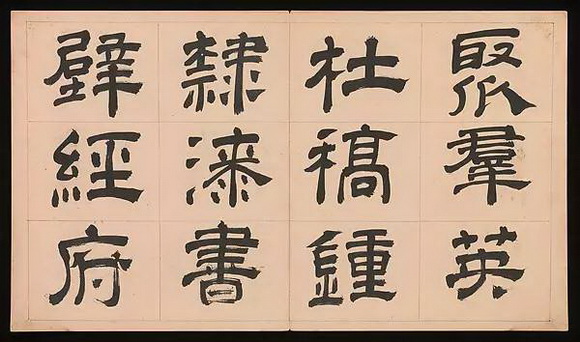 聚羣英
杜稿鍾
隸漆書
壁經府